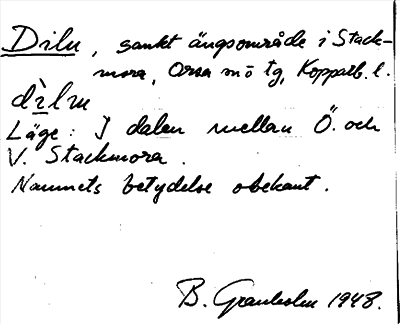 Dilu, sankt ängsområde i Stack-
mora, Orsa m ö tg, Kopparb. l.
dìlu
Läge: I dalen mellan Ö. och
V. Stackmora.
Namnets betydelse obekant.
B. Granholm 1948.